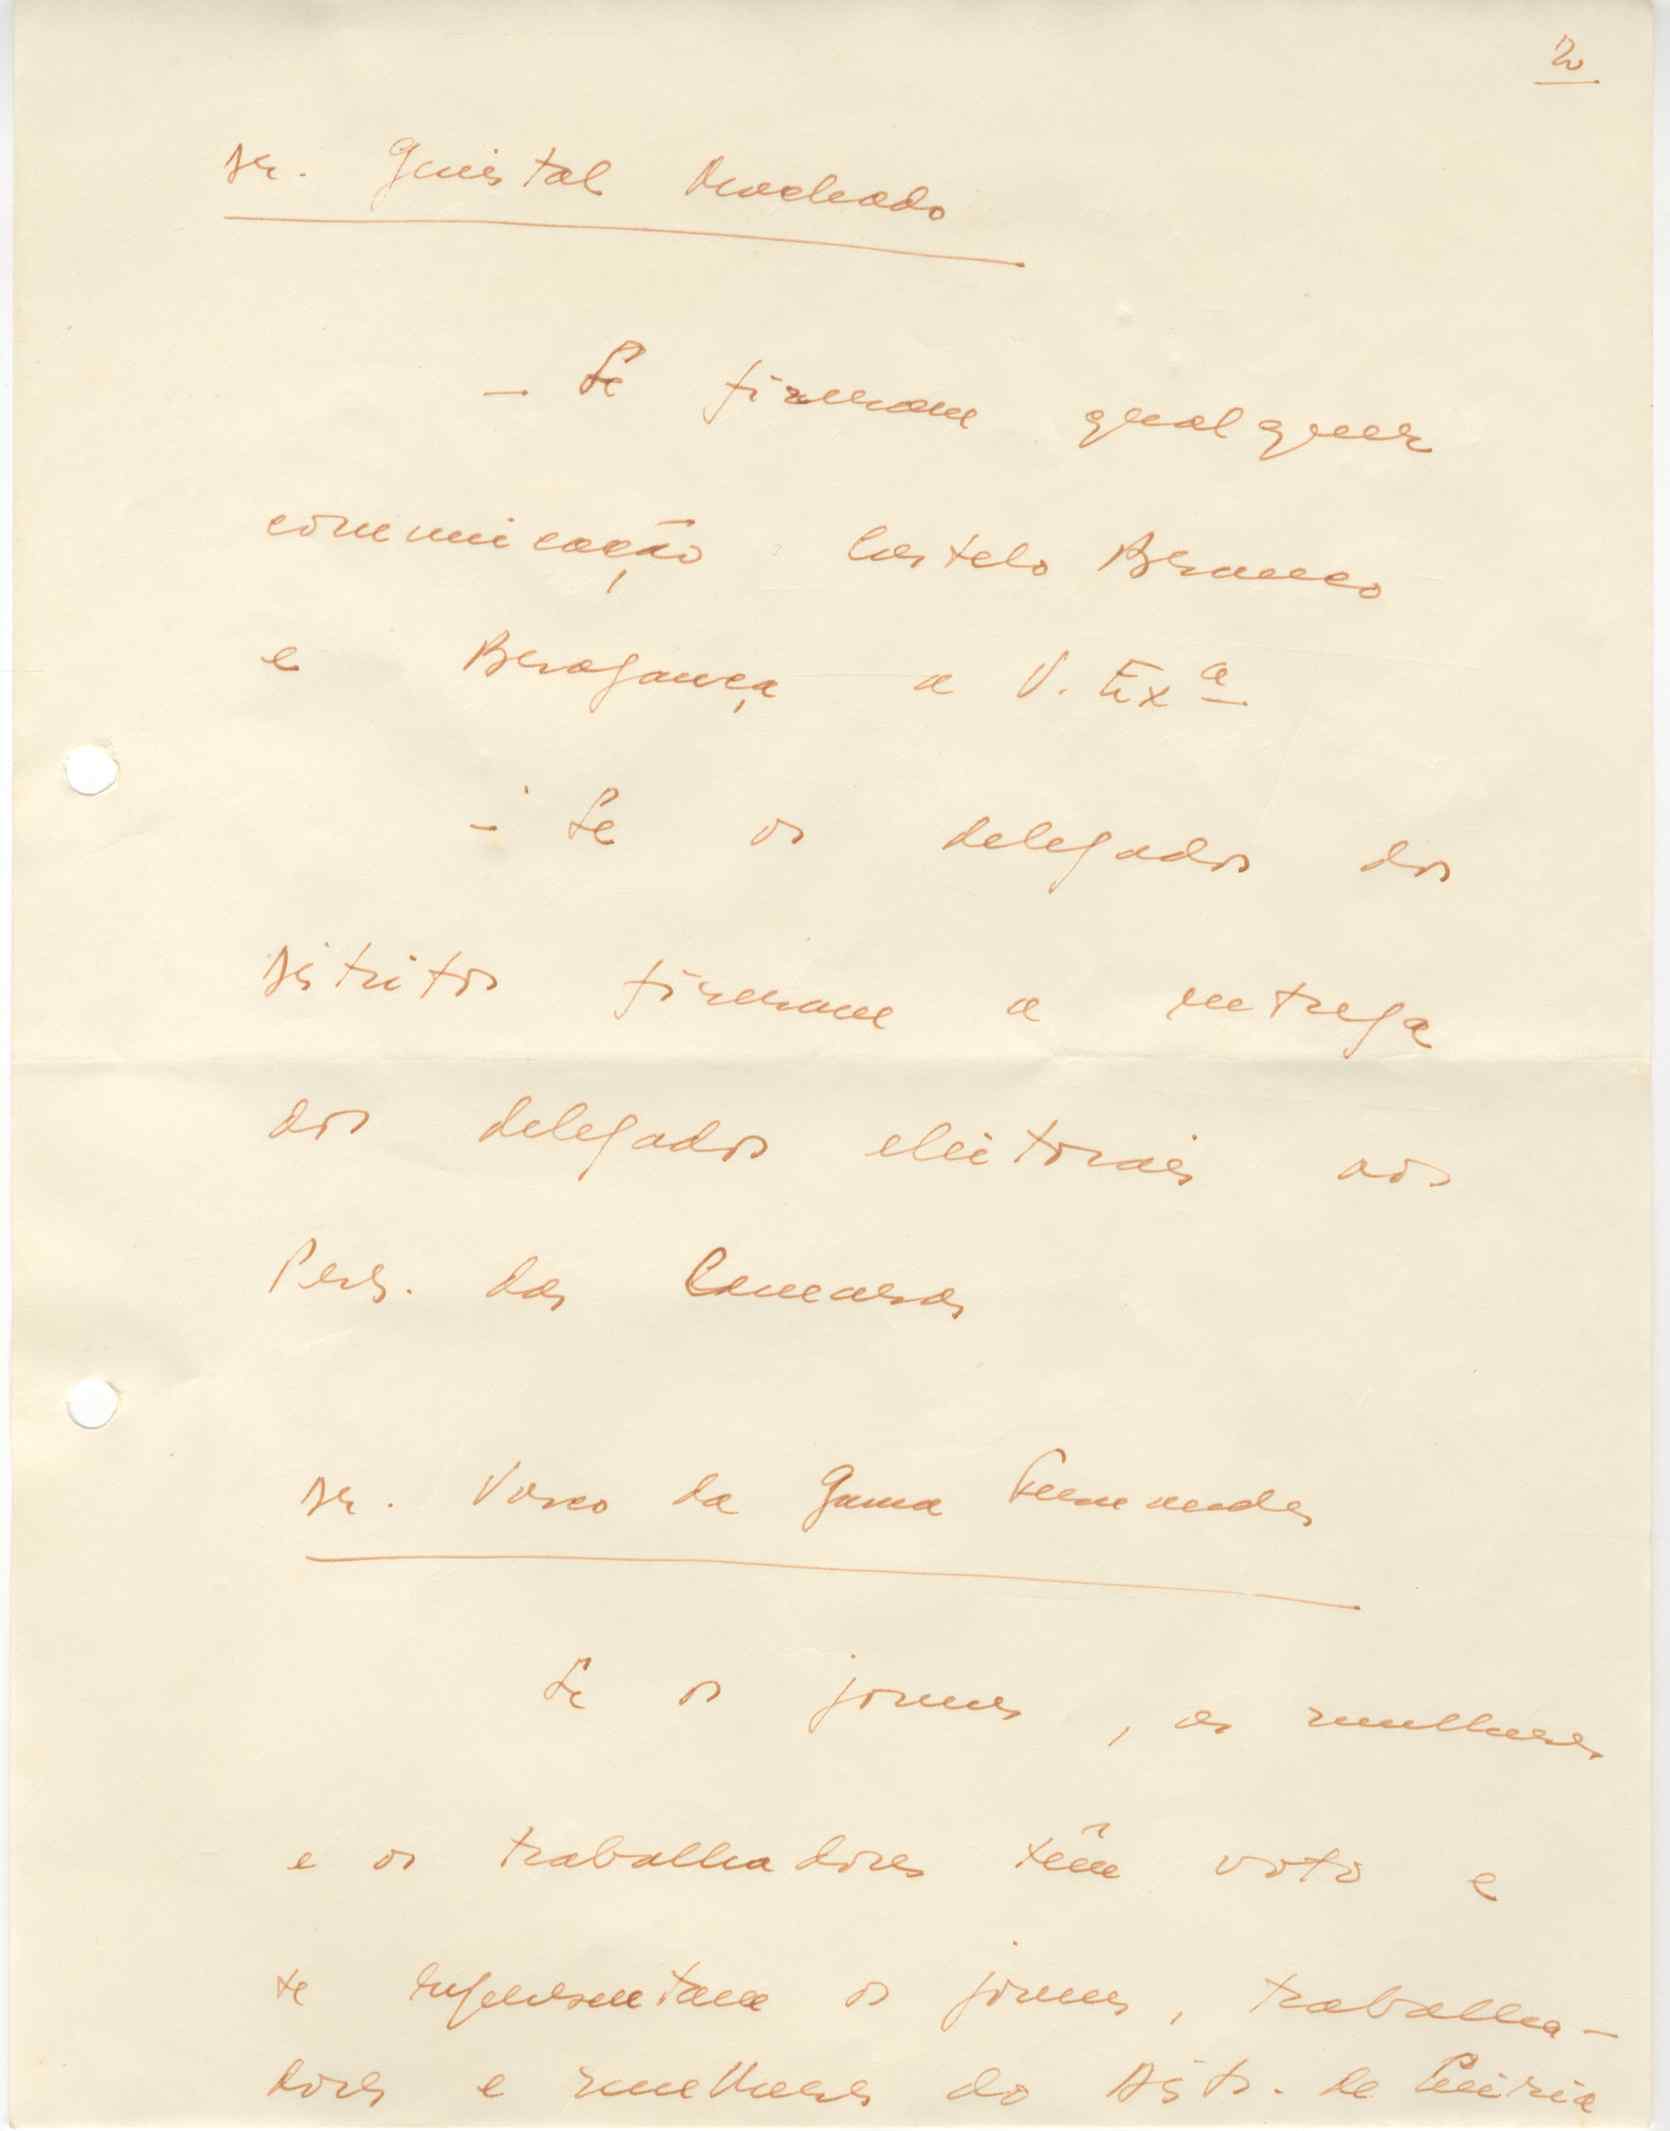 2
Dr. Quintal Machado
- Se fizeram qualquer
comunicação Castelo Branco
e Bragança a V. Exª
- Se os delegados dos
distritos fizeram a entrega
dos delegados eleitorais aos
Pres. das Camaras
Dr. Vasco da Gama Fernandes
Se os jovens, as mulheres
e os trabalhadores têm voto e
se representam os jovens, trabalha-
dores e mulheres do Distr. de Leiria